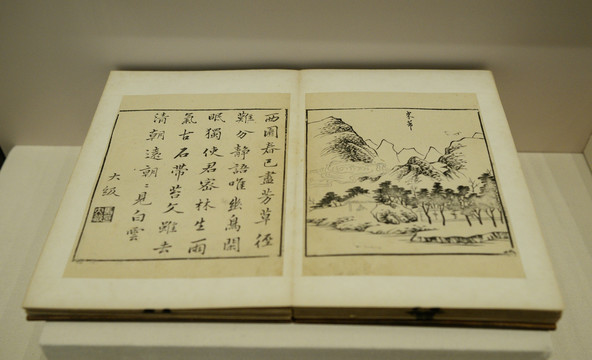 西園春已盡芳草徑
難分靜語唯幽鳥閑
眠獨使君密林生雨
氣古石帶苔文雖去
清朝遠朝〻見白雲
大級
米芾